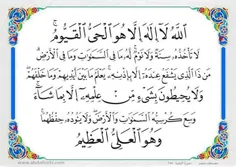 اللَّهُ لَا إِلَٰهَ إِلَّا هُوَ الْحَيُّ الْقَيُّومُ
لَا تَأْخُذُهُ سِنَةٌ وَلَا نَوْمٌ لَهُ مَا فِي السَّمَاوَاتِ وَمَا فِي الْأَرْضِ
مَنْ ذَا الَّذِي يَشْفَعُ عِنْدَهُ إِلَّا بِإِذْنِهِ يَعْلَمُ مَا بَيْنَ أَيْدِيهِمْ وَمَا خَلْفَهُمْ
وَلَا يُحِيطُونَ بِشَيْءٍ مِنْ عِلْمِهِ إِلَّا بِمَا شَاءَ
وَسِعَ كُرْسِيُّهُ السَّمَاوَاتِ وَالْأَرْضَ وَلَا يَئُودُهُ حِفْظُهُمَا
وَهُوَ الْعَلِيُّ الْعَظِيمُ